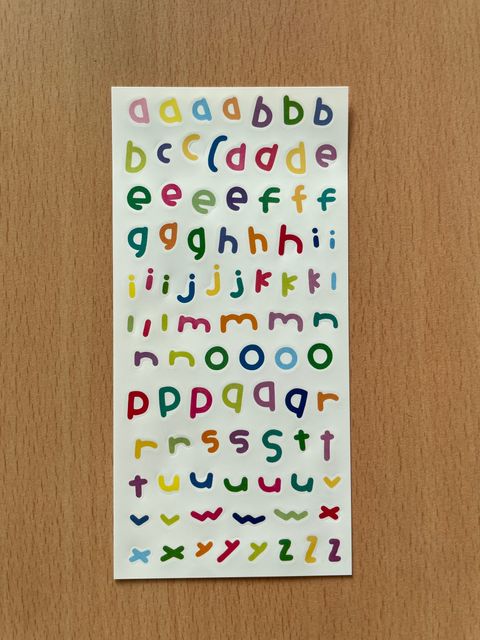 a a a a b b b
b c c c d d d e
e e e e f f f
g g g h h h i i
i i i j j j k k k l
l l l m m m n
n n o o o o
p p p q q q r
r r s s s t t
t u u u u u v
v v w w w x
x x y y y z z z